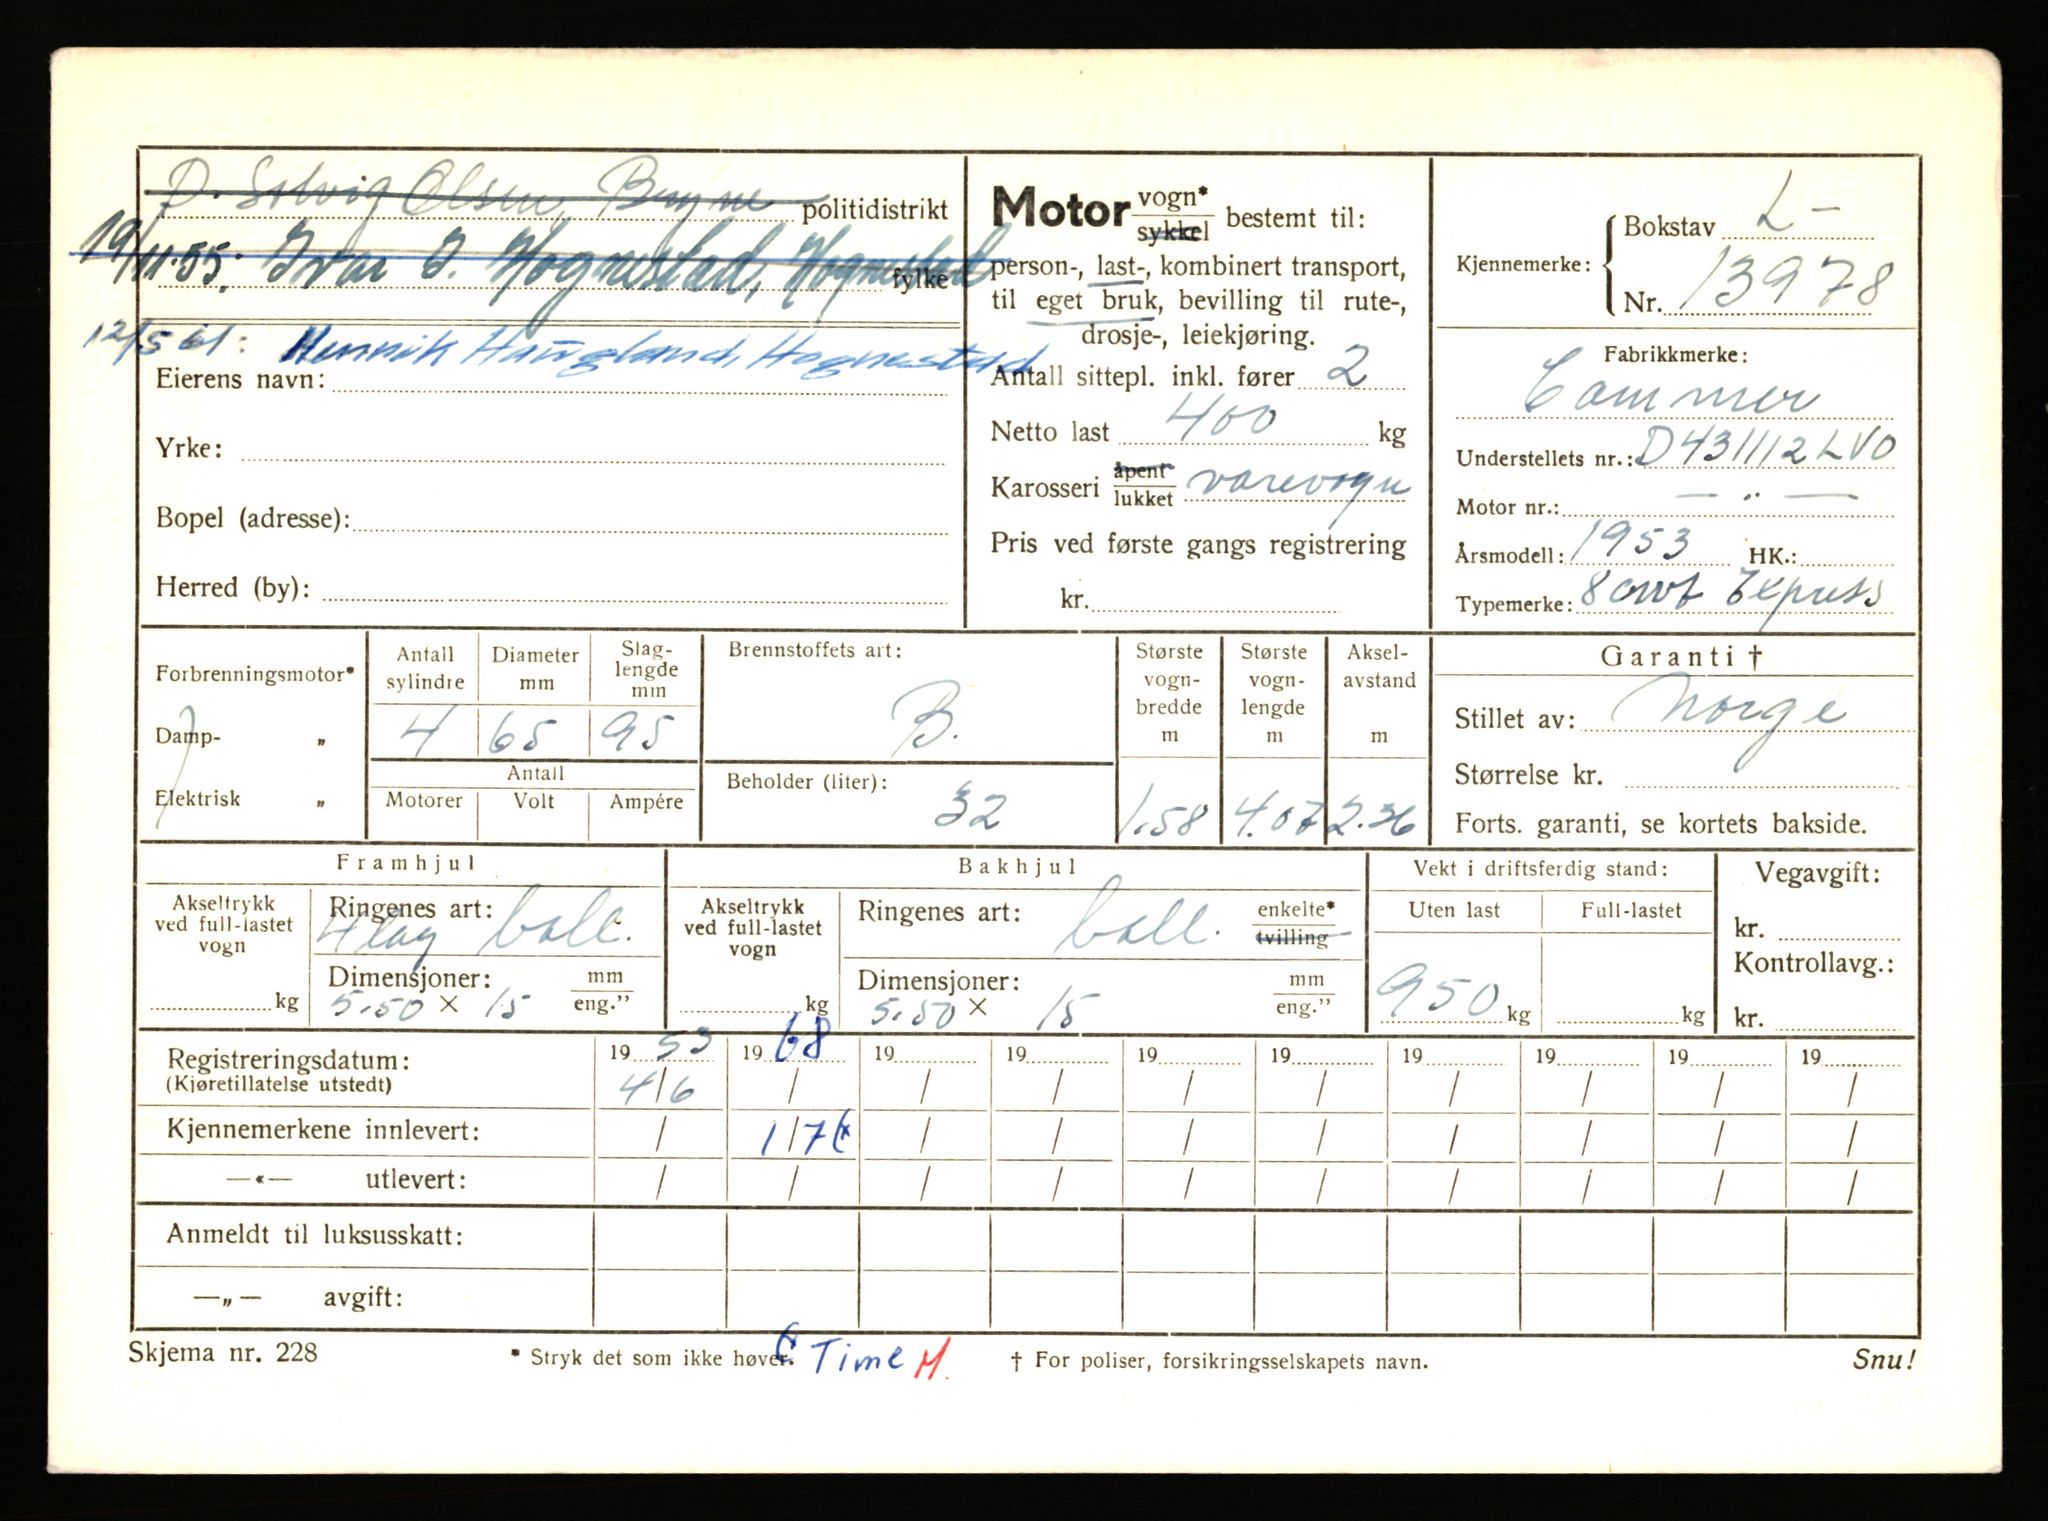 D. Solvig Olsen, Bryne politidistrikt
19/11-55: Ivar J. Hognestad, Hognestad fylke
12/5 61: Henrik Haugland, Hognestad
Eierens navn:
Yrke:
Bopel (adresse):
Herred (by):
Motor vogn* sykkel bestemt til:
person-, last-, kombinert transport,
til eget bruk, bevilling til rute-,
drosje-, leiekjøring.
Antall sittepl. inkl. fører 2
Netto last 400 kg
Karosseri åpent lukket varevogn
Pris ved første gangs registrering
kr.
Kjennemerke: Bokstav L-
Nr. 13978
Fabrikkmerke:
Commer
Understellets nr.: D431112LVO
Motor nr.: — „ —
Årsmodell: 1953 HK.:
Typemerke: 8 cwt Express
Forbrenningsmotor*
Damp- „
Elektrisk „
Antall sylindre Diameter mm Slag-lengde mm
4 65 95
Antall
Motorer Volt Ampére
Brennstoffets art:
B.
Beholder (liter):
32
Største vogn-bredde m
1.58
Største vogn-lengde m
4.07
Aksel-avstand m
2.36
Garanti †
Stillet av: Norge
Størrelse kr.
Forts. garanti, se kortets bakside.
Framhjul
Akseltrykk ved full-lastet vogn
kg
Ringenes art:
4 lag ball.
Dimensjoner: mm
5.50 × 15 eng.”
Bakhjul
Akseltrykk ved full-lastet vogn
kg
Ringenes art: ball. enkelte* tvilling
Dimensjoner: mm
5.50 × 15 eng.”
Vekt i driftsferdig stand:
Uten last Full-lastet
950 kg kg
Vegavgift:
kr.
Kontrollavg.:
kr.
Registreringsdatum: 19 53 19 68 19 19 19 19 19 19 19 19
(Kjøretillatelse utstedt) 4/6 / / / / / / / / /
Kjennemerkene innlevert: / 1/7 (x / / / / / / / /
—«— utlevert: / / / / / / / / / /
Anmeldt til luksusskatt:
—„— avgift:
Skjema nr. 228 * Stryk det som ikke høver. (x Time M. † For poliser, forsikringsselskapets navn. Snu!